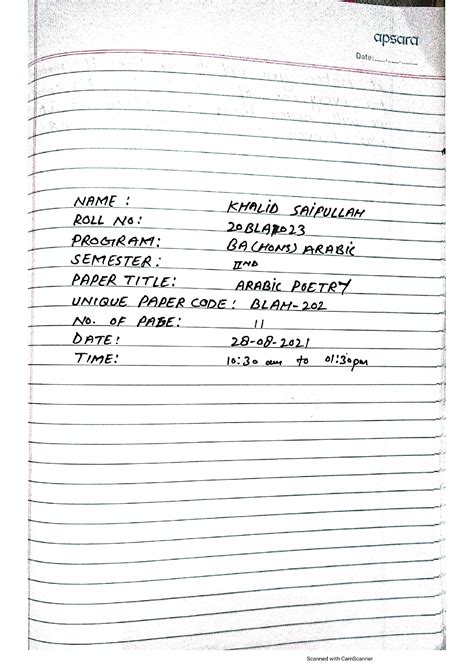 apsara
Date:
NAME : KHALID SAIFULLAH
ROLL NO: 
PROGRAM: BA(HONS) ARABIC
SEMESTER: IIND
PAPER TITLE: ARABIC POETRY
UNIQUE PAPER CODE: BLAH-202
NO. OF PAGE: 11
DATE: 28-08-2021
TIME: 10:30 am to 01:30pm
Scanned with CamScanner